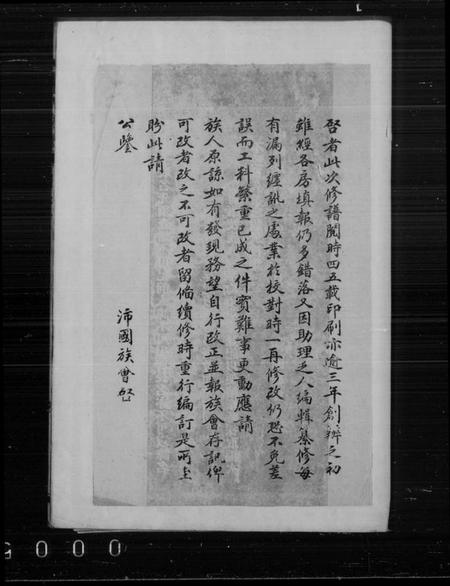 啓者此次修譜閱時四五載印刷亦逾三年創辦之初
雖經各房填報仍多錯落又因助理乏人編輯纂修每
有漏列纏訛之處業於校對時一再修改仍恐不免差
誤而工科繁重已成之件實難事更動應請
族人原諒如有發現務望自行改正並報族會存訊俾
可改者改之不可改者留備續修時重行編訂是所至
盼此請
公鑒
沛國族會啓
0005